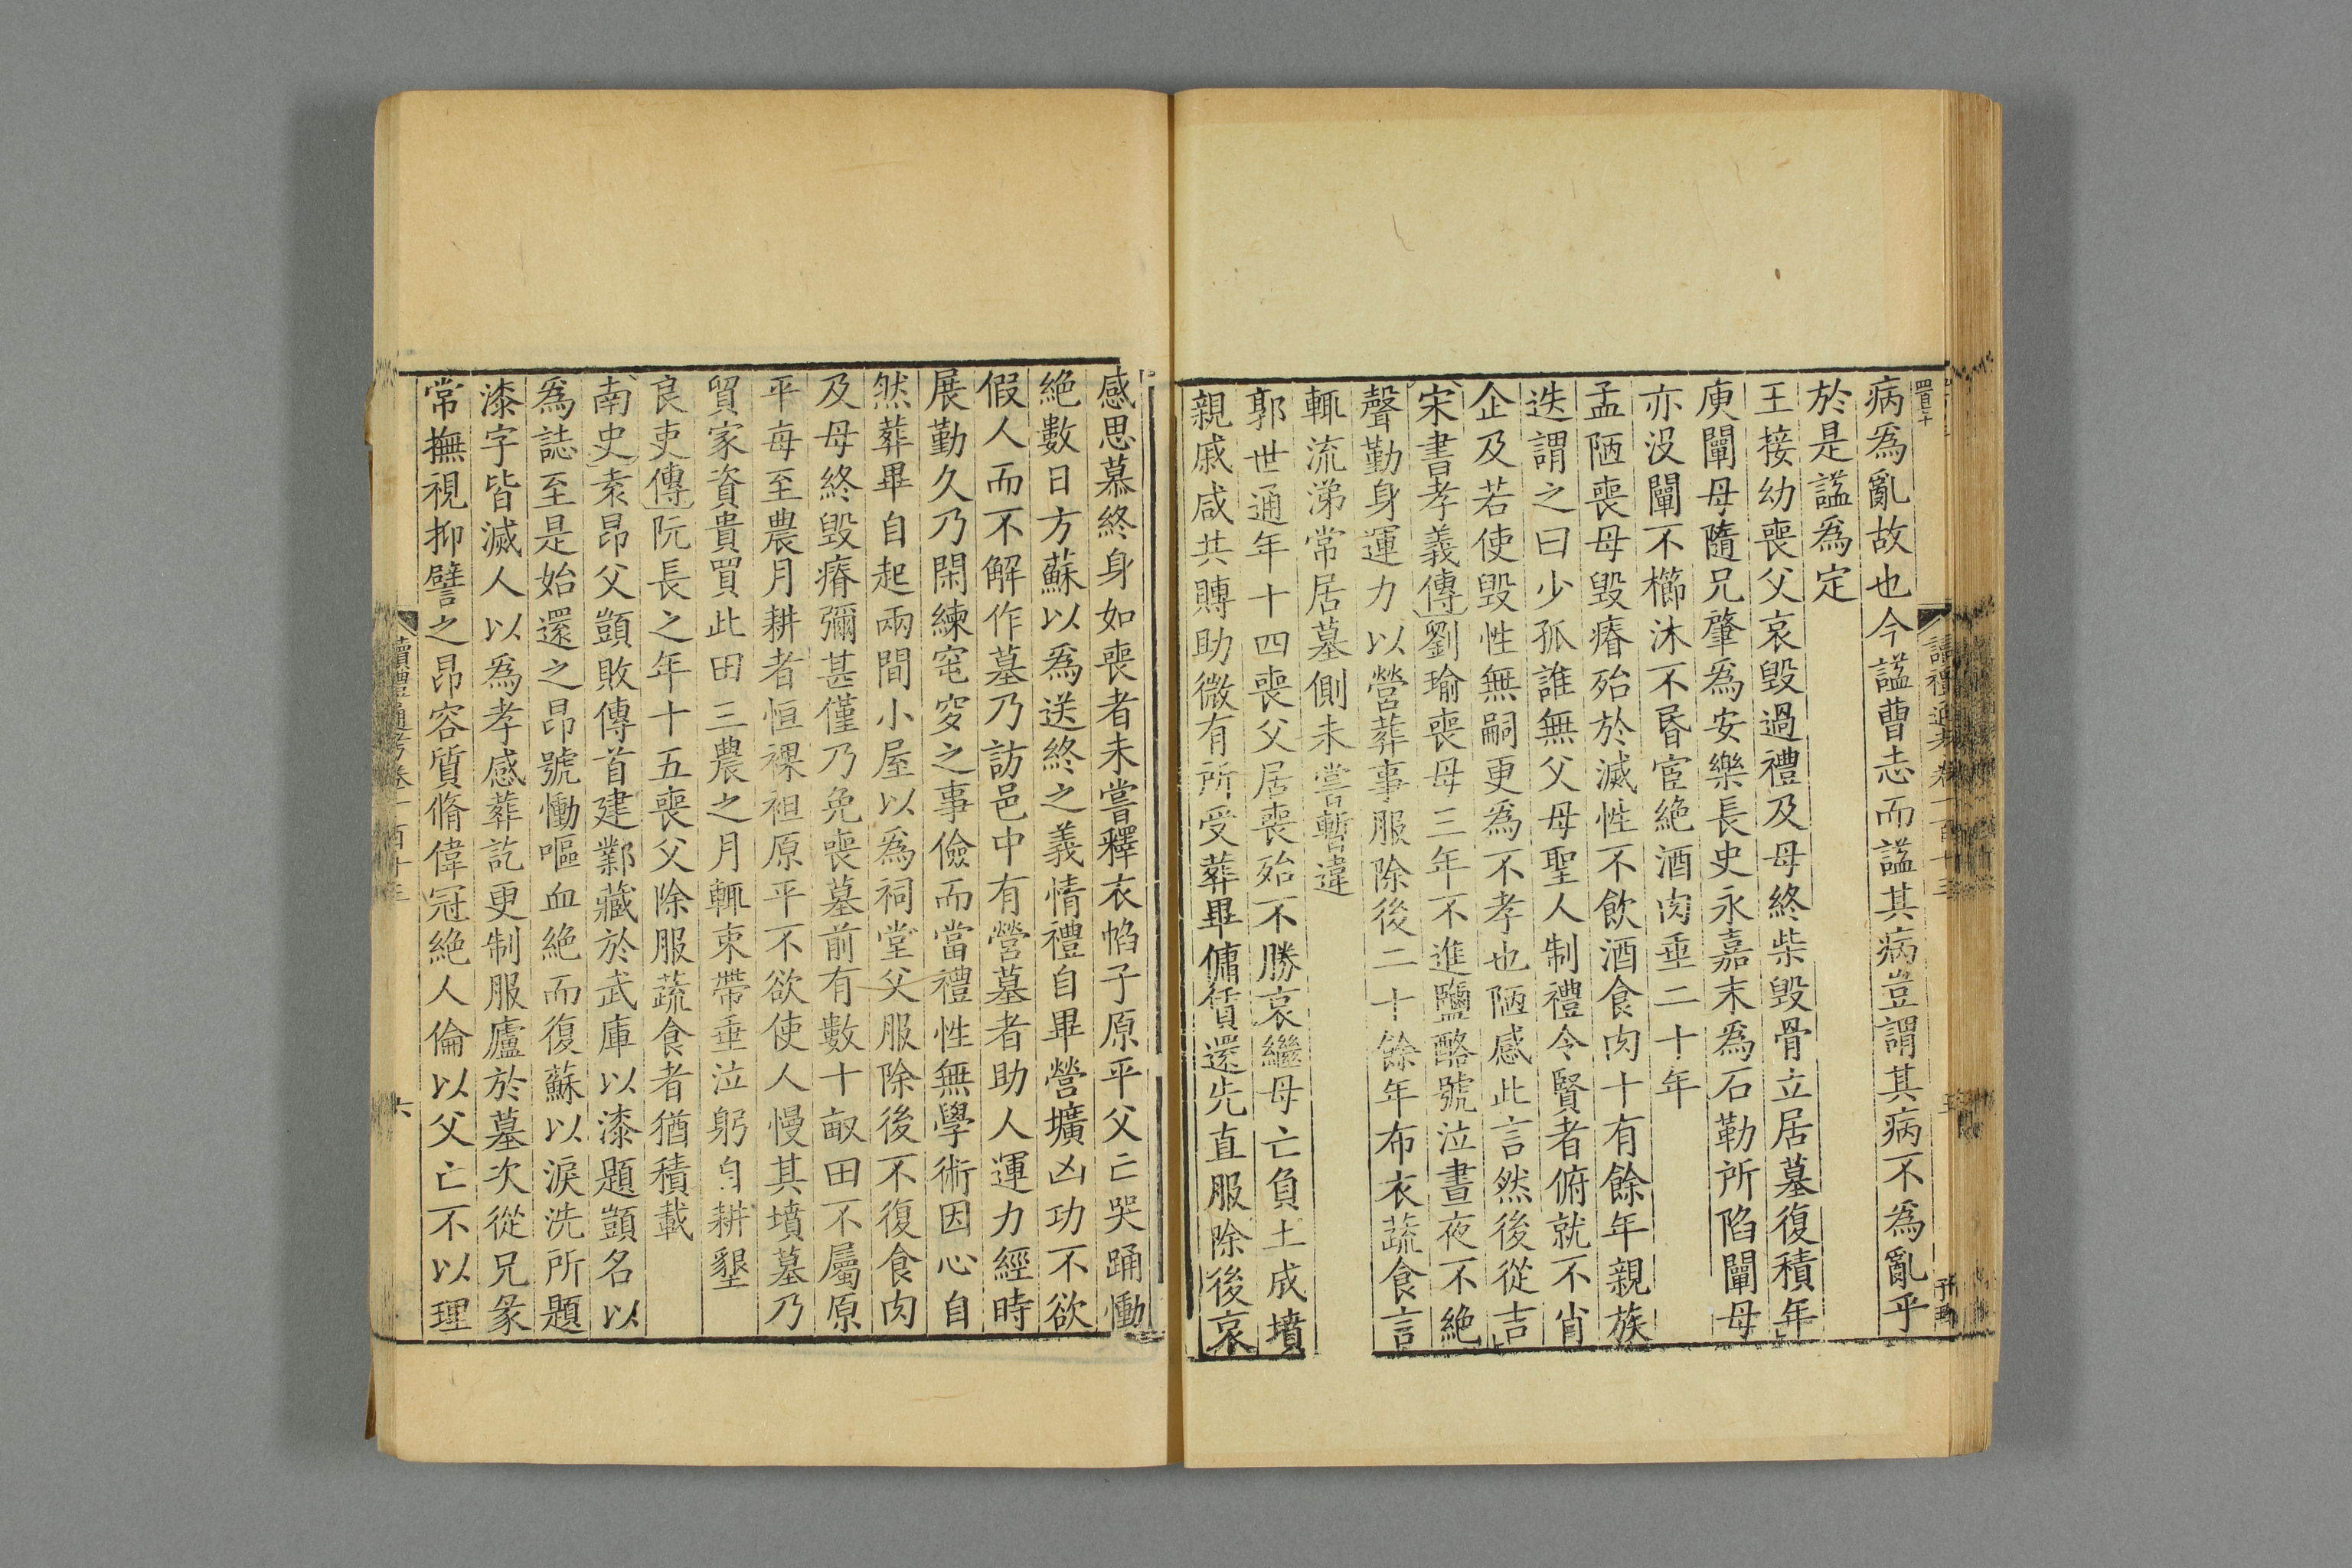 病爲亂故也今諡曹志而諡其病豈謂其病不爲亂乎
於是諡爲定
王接幼喪父哀毀過禮及母終柴毀骨立居墓復積年
庾闡母隨兄肇爲安樂長史永嘉末爲石勒所陷闡母
亦没闡不櫛沐不昏宦絶酒肉垂二十年
孟陋喪母毀瘠殆於滅性不飲酒食肉十有餘年親族
迭謂之曰少孤誰無父母聖人制禮令賢者俯就不肖
企及若使毀性無嗣更爲不孝也陋感此言然後從吉
宋書孝義傳劉瑜喪母三年不進鹽酪號泣晝夜不絶
聲勤身運力以營葬事服除後二十餘年布衣蔬食言
輒流涕常居墓側未嘗暫違
郭世通年十四喪父居喪殆不勝哀繼母亡負土成墳
親戚咸共賻助微有所受葬畢傭賃還先直服除後哀
感思慕終身如喪者未嘗釋衣帢子原平父亡哭踊慟
絶數日方蘇以爲送終之義情禮自畢營壙凶功不欲
假人而不解作墓乃訪邑中有營墓者助人運力經時
展勤久乃閑練窀穸之事儉而當禮性無學術因心自
然葬畢自起兩間小屋以爲祠堂父服除後不復食肉
及母終毀瘠彌甚僅乃免喪墓前有數十畝田不屬原
平每至農月耕者恒裸袒原平不欲使人慢其墳墓乃
貿家資貴買此田三農之月輒束帶垂泣躬自耕墾
良吏傳阮長之年十五喪父除服蔬食者猶積載
南史袁昂父顗敗傳首建鄴藏於武庫以漆題顗名以
爲誌至是始還之昂號慟嘔血絶而復蘇以淚洗所題
漆字皆滅人以爲孝感葬訖更制服廬於墓次從兄彖
常撫視抑譬之昂容質脩偉冠絶人倫以父亡不以理
讀禮通考卷一百十三
六